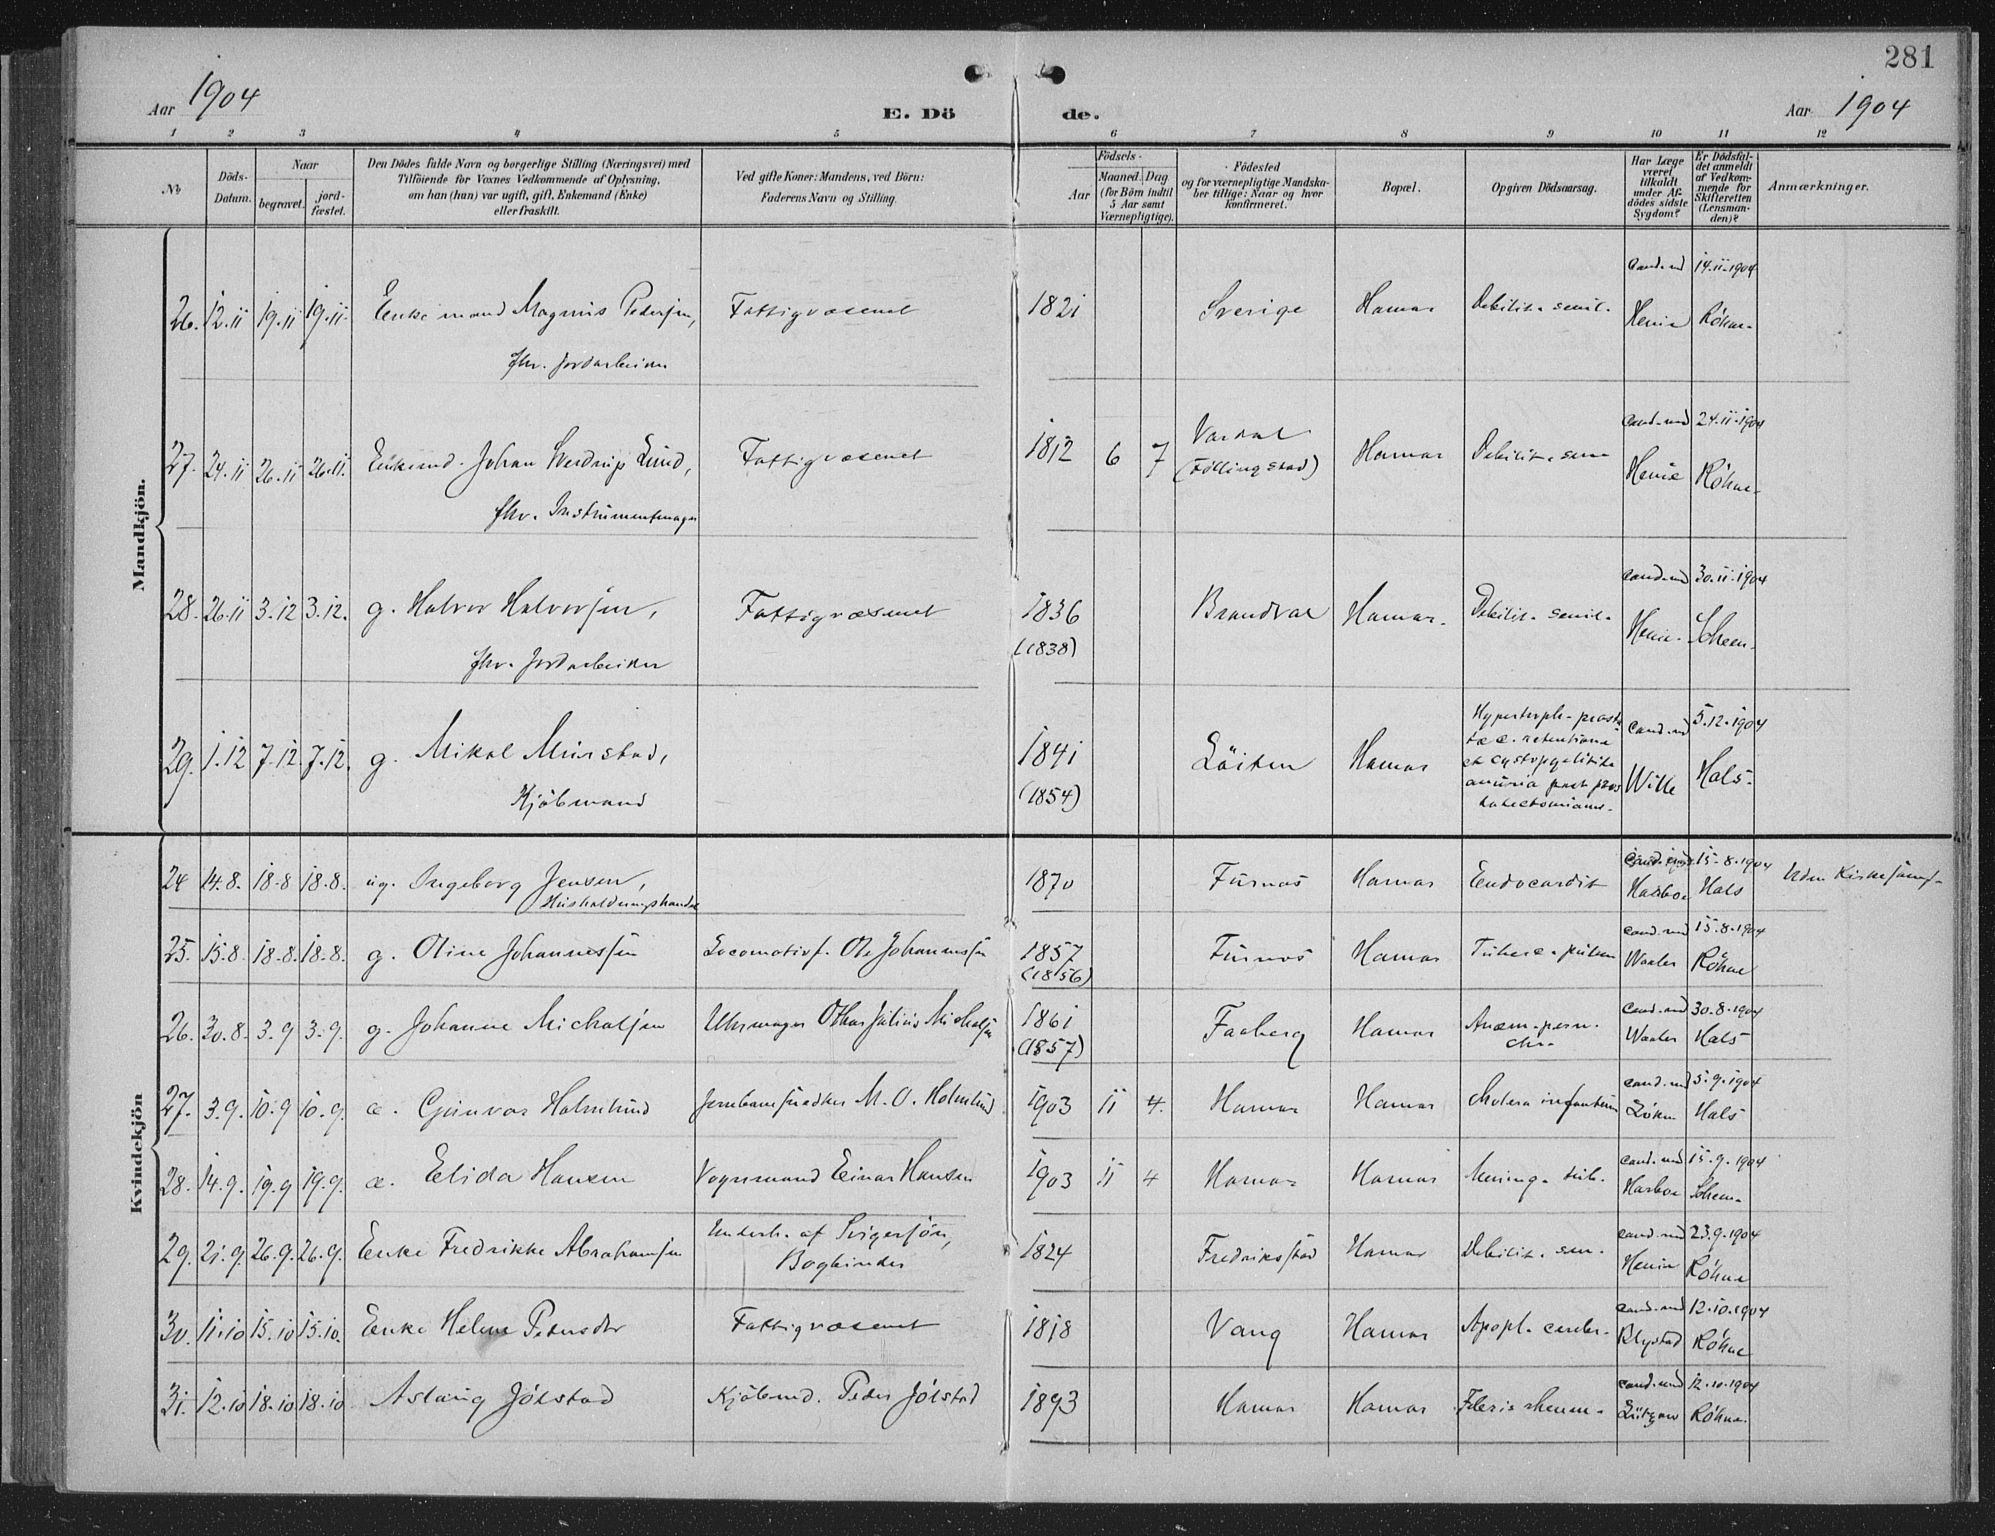 281
Aar 1904
E. Döde.
Aar 1904
1 2 3 4 5 6 7 8 9 10 11 12
No
Döds-Datum.
Naar
begravet. jord-fæstet.
Den Dödes fulde Navn og borgerlige Stilling (Næringsvei) med
Tilföiende for Voxnes Vedkommende af Oplysning,
om han (hun) var ugift, gift, Enkemand (Enke)
eller fraskilt.
Ved gifte Koner: Mandens, ved Börn:
Faderens Navn og Stilling.
Födsels-
Aar
Maaned. Dag
(for Börn indtil
5 Aar samt
Værnepligtige).
Födested
og for værnepligtige Mandska-
ber tillige: Naar og hvor
konfirmeret.
Bopæl.
Opgiven Dödsaarsag.
Har Læge
været
tilkaldt
under Af-
dödes sidste
Sygdom?
Er Dödsfal-
det anmeldt
af Vedkom-
mende for
Skifteretten
(Lensman-
den)?
Anmærkninger.
Mandkjön.
26. 12.11 19.11 19.11. Enkemand Magnus Pedersen, Fattigvæsenet 1821 Sverige Hamar Debilit. senil. cand. md 14.11.1904
fhv. Jordarbeider Röhne.
27. 24.11 26.11 26.11. Enkemd. Johan Sverdrup Lund, Fattigvæsenet 1812 6 7 Vardal Hamar Debilit. sen. cand. md 24.11.1904
(Föllingstad)
fhv. Instrumentmager Röhne.
28. 26.11 3.12 3.12. g. Halvor Halvorsen, Fattigvæsenet 1836 Brandval Hamar. Debilit. senil. cand. md 30.11.1904
(1838)
fhv. Jordarbeider Scheen.
29. 1.12 7.12 7.12. g. Mikal Murstad, 1841 Löiten Hamar cand. md 5.12.1904
(1854)
Kjöbmand Wille Hals.
Hypertroph. prosta
tæ c. retentione
et cystopyelitide
anuria post pros
tatectomiam.
Kvindekjön
24 14.8. 18.8 18.8. ug. Ingeborg Jensen, 1870 Furnes Hamar Endocardit 15.8.1904
Harboe Hals
25. 15.8. 18.8. 18.8. g. Oline Johannessen Locomotivf. Ole Johannessen 1857 Furnes Hamar cand. md 15.8.1904
(1856) Waaler Röhne
26. 30.8. 3.9 3.9. g. Johanne Michalsen Uhrmager Othar Julius Michalsen 1861 Faaberg Hamar Anæm. pern. cand. md 30.8.1904
(1857) Waaler Hals
27. 3.9. 10.9 10.9. æ. Gunvor Holmlund M. O. Holmlund 1903 11 4. Hamar Hamar Cholera infantum cand. md 5.9.1904
Hals
28. 14.9. 19.9 19.9. æ. Elida Hansen Vognmand Einar Hansen 1903 11 4 Hamar Hamar Mening. tub. cand. md 15.9.1904
Harboe Scheen.
29. 21.9. 26.9. 26.9. Enke Fredrikke Abrahamsen Underh. af Svigersön, 1824 Fredriksstad Hamar Debilit. sen. cand. md 23.9.1904
Bogbinder Röhne
30. 11.10 15.10 15.10. Enke Helene Pedersdtr Fattigvæsenet 1818 Vang Hamar Apopl. cerebr. cand. md 12.10.1904
Röhne
31. 12.10 18.10 18.10 Aslaug Jölstad Kjöbmd. Peder Jölstad 1893 Hamar Hamar cand. md 12.10.1904
Röhne.